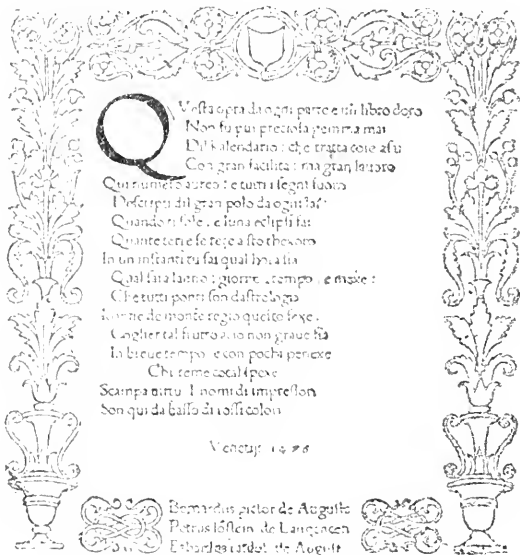 QVesta opra da ogni parte e un libro doro
Non fu piu preciosa gemma mai
Dil kalendario: che tratta cose asai
Con gran facilita: ma gran lauoro
Qui numero aureo: e tutti i segni fuoro
Descripti dil gran polo da ogni lai:
Quando il sole, e luna eclipsi fai
Quante terre se rece a sto thexoro
In un instanti tu sai qual hora sia
Qual sara lanno: giorno, tempo, e mexe:
Che tutti ponti son dastrologia
Ioanne de monte regio questo fexe,
Coglier tal frutto acio non graue sia
In breue tempo, e con pochi penexe
Chi teme cotal spexe
Scampa uirtu I nomi di impressori
Son qui da basso di rossi colori
Venetijs 1476
Bernardus pictor de Augusta
Petrus löslein de Langencen
Erhardus ratdolt de Augusta